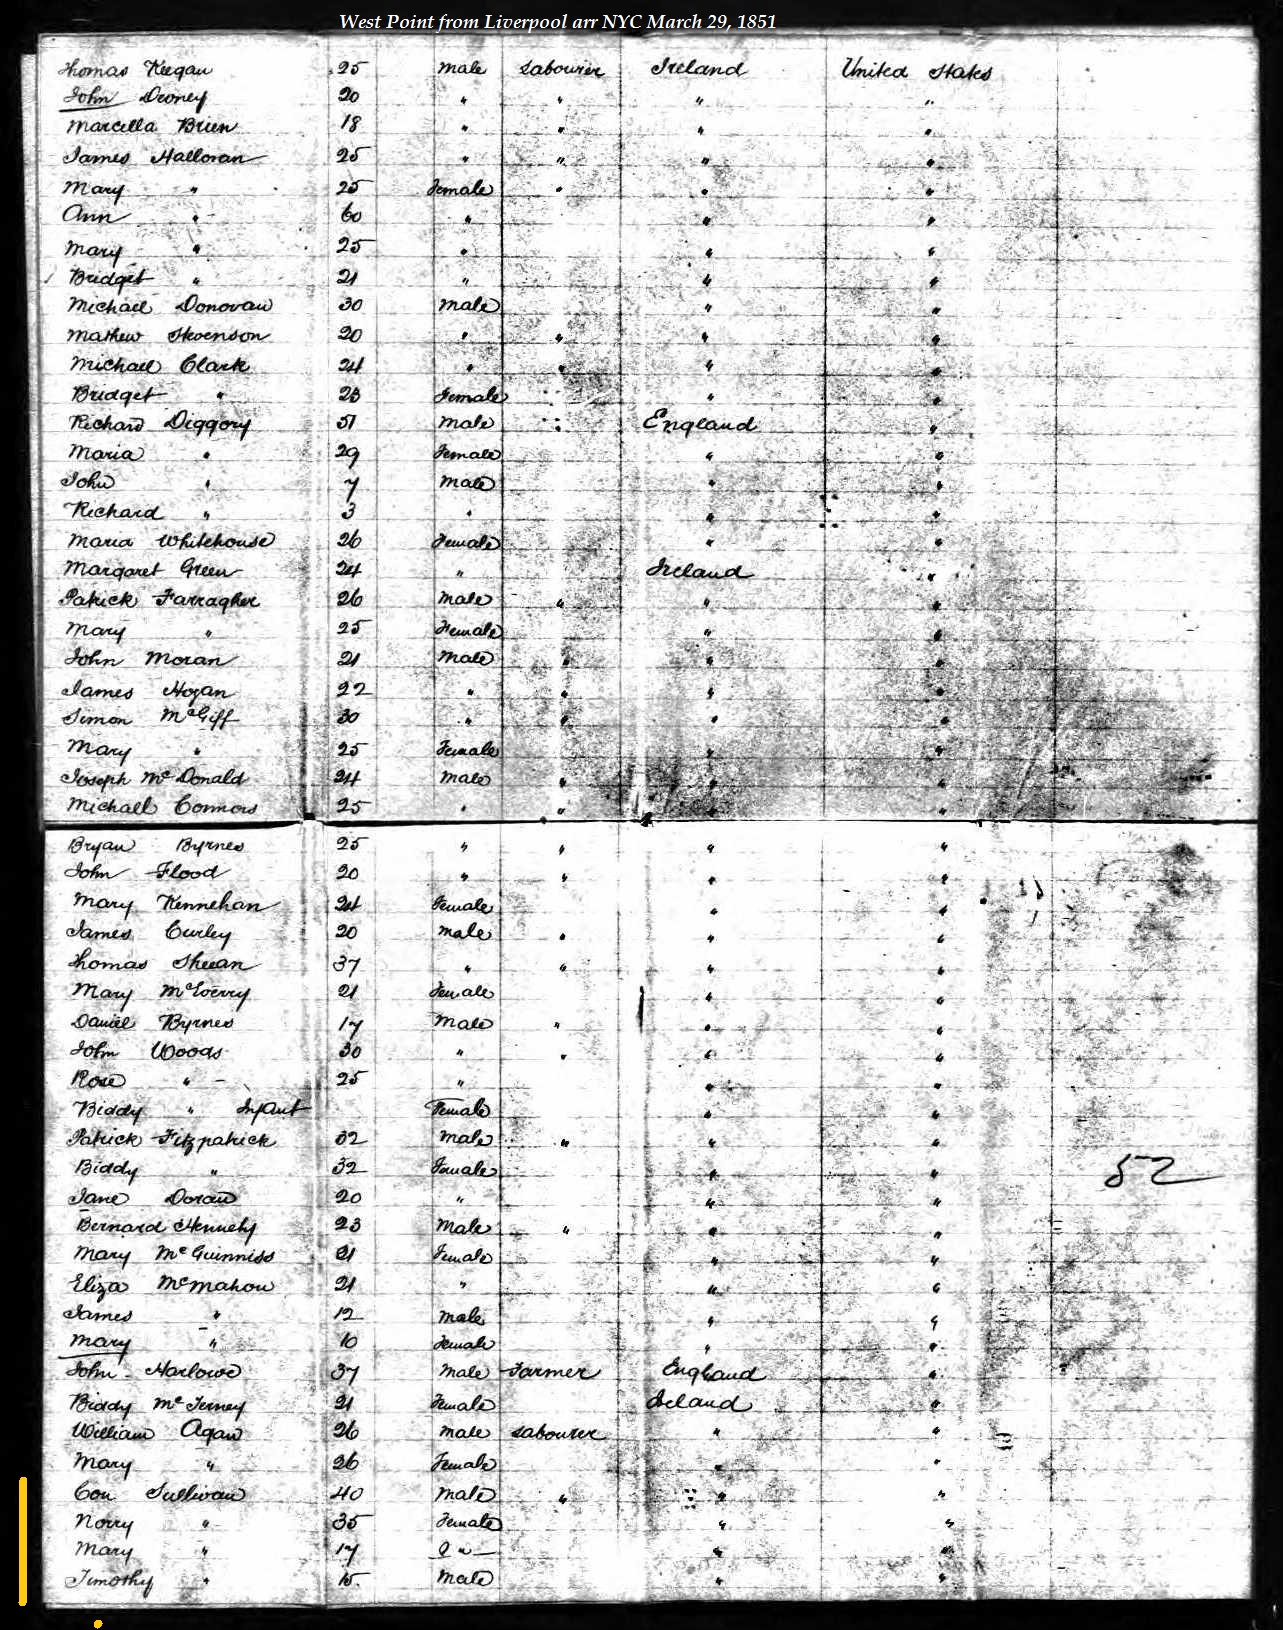 West Point from Liverpool arr NYC March 29, 1851
Thomas Keegan 25 Male Labourer Ireland United States
John 20 " " " "
Marcella Brien 18 " " " "
James Halloran 25 " " " "
Mary " 25 Female " " "
Ann " 60 " " "
Mary " 25 " " "
Bridget " 21 " " "
Michael Donovan 30 Male " "
Mathew 20 " " " "
Michael Clark 24 " " " "
Bridget " 23 Female " "
Richard Diggory 51 Male " England "
Maria " 29 Female " "
John " 7 Male " "
Richard " 3 " " "
Maria Whitehouse 26 Female " "
Margaret Green 24 " Ireland "
Patrick Farragher 26 Male " " "
Mary " 25 Female " "
John Moran 21 Male " " "
James Hogan 22 " " " "
Simon McGiff 30 " " " "
Mary " 25 Female " "
Joseph McDonald 24 Male " " "
Michael Connors 25 " " " "
Bryan Byrnes 25 " " " "
John Flood 20 " " " "
Mary Kennehan 24 Female " "
James Curley 20 Male " " "
Thomas Sheean 37 " " " "
Mary 21 Female " "
Daniel Byrnes 17 Male " " "
John Woods 30 " " " "
Rose " 25 " " "
Biddy " Infant Female " "
Patrick Fitzpatrick 32 Male " " "
Biddy " 32 Female " " 52
Jane Doran 20 " " "
Bernard Hennehy 23 Male " " "
Mary McGuinniss 21 Female " "
Eliza McMahon 21 " " "
James " 12 Male " "
Mary " 10 Female " "
John Harlowe 37 Male Farmer England "
Biddy McTerney 21 Female Ireland "
William Agan 26 Male Labourer " "
Mary " 26 Female " "
Con Sullivan 40 Male " " "
Norry " 35 Female " "
Mary " 17 " "
Timothy " 15 Male " "